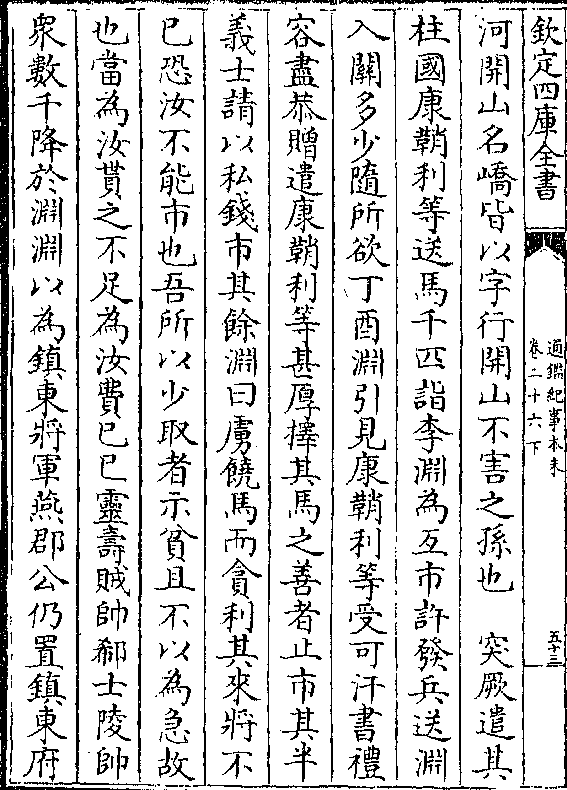 欽定四庫全書
通鑑紀事本末
卷二十六下
五十三
河開山名嶠皆以字行開山不害之孫也　突厥遣其
柱國康鞘利等送馬千匹詣李淵為互市許發兵送淵
入關多少隨所欲丁酉淵引見康鞘利等受可汗書禮
容盡恭贈遣康鞘利等甚厚擇其馬之善者止市其半
義士請以私錢市其餘淵曰虜饒馬而貪利其來將不
已恐汝不能市也吾所以少取者示貧且不以為急故
也當為汝貰之不足為汝費巳巳靈壽賊帥郗士陵帥
衆數千降於淵淵以為鎮東將軍燕郡公仍置鎮東府